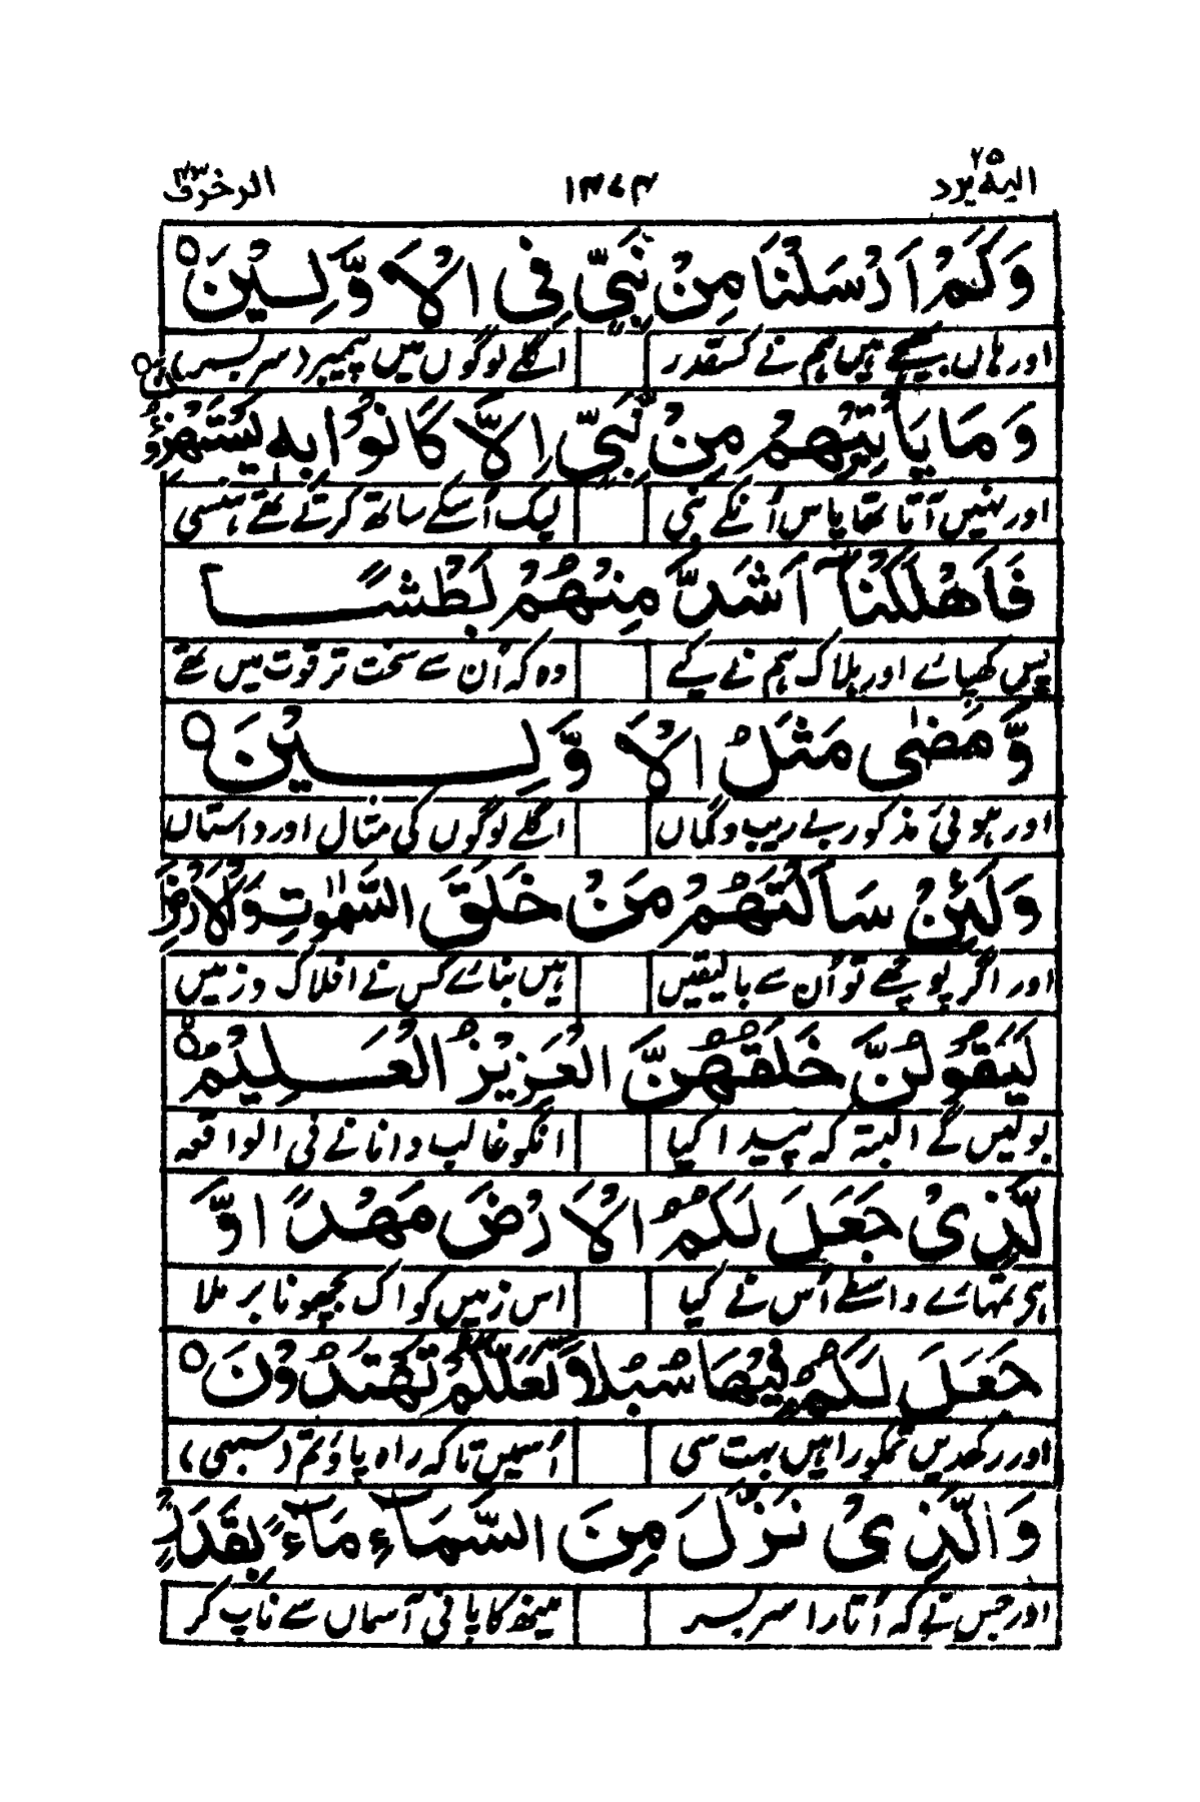 الیه یرد ۲۵ ۱۳۷۴ الزخرف ۴۳
وَكَمْ اَرْسَلْنَا مِنْ نَّبِيٍّ فِي الْاَوَّلِيْنَ ○
اور ہاں بھیجے ہیں ہم نے کسقدر اگلے لوگوں میں پیمبر (سر بسر)
وَمَا يَاْتِيْهِمْ مِنْ نَّبِيٍّ اِلَّا كَانُوْا بِهٖ يَسْتَهْزِءُوْنَ ○
اور نہیں آتا تھا پاس اُنکے نبی لیک اُسکے ساتھ کرتے تھے ہنسی
فَاَهْلَكْنَاۤ اَشَدَّ مِنْهُمْ بَطْشًا
پس کھپائے اور ہلاک ہم نے کیے وہ کہ اُن سے سخت تر قوت میں تھے
وَّمَضٰى مَثَلُ الْاَوَّلِيْنَ ○
اور ہوئی مذکور بے ریب و گماں اگلے لوگوں کی مثال اور داستاں
وَلَئِنْ سَاَلْتَهُمْ مَنْ خَلَقَ السَّمٰوٰتِ وَالْاَرْضَ
اور اگر پوچھے تو اُن سے بالیقیں ہیں بنائے کس نے افلاک و زمیں
لَيَقُوْلُنَّ خَلَقَهُنَّ الْعَزِيْزُ الْعَلِيْمُ ○
بولیں گے البتہ کہ پیدا کیا انکو غالب دانا نے فی الواقعہ
لَّذِيْ جَعَلَ لَكُمُ الْاَرْضَ مَهْدًا وَّ
تمہارے واسطے اُس نے کیا اس زمیں کو اک بچھونا بر ملا
جَعَلَ لَكُمْ فِيْهَا سُبُلًا لَّعَلَّكُمْ تَهْتَدُوْنَ ○
اور رکھدیں تمکو راہیں بہت سی اُسمیں تاکہ راہ پاؤ تم (سبھی)
وَالَّذِيْ نَزَّلَ مِنَ السَّمَآءِ مَآءًۢ بِقَدَرٍ
اور جس نے کہ اُتارا سر بسر مینھ کا پانی آسماں سے ناپ کر